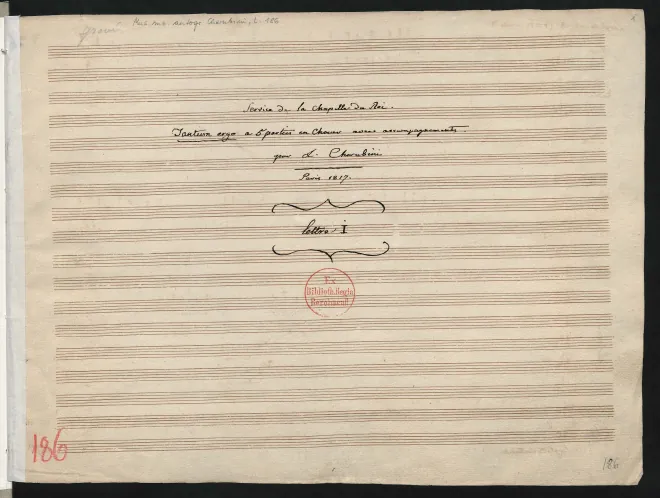 Mus. ms. autogr. Cherubini, L. 186
1
Service de la Chapelle du Roi.
Tantum ergo a 5 parties en Choeur avec accompagnements.
par L. Cherubini
Paris 1817.
lettre I
Ex
Biblioth. Regia
Berolinenſi.
186
186